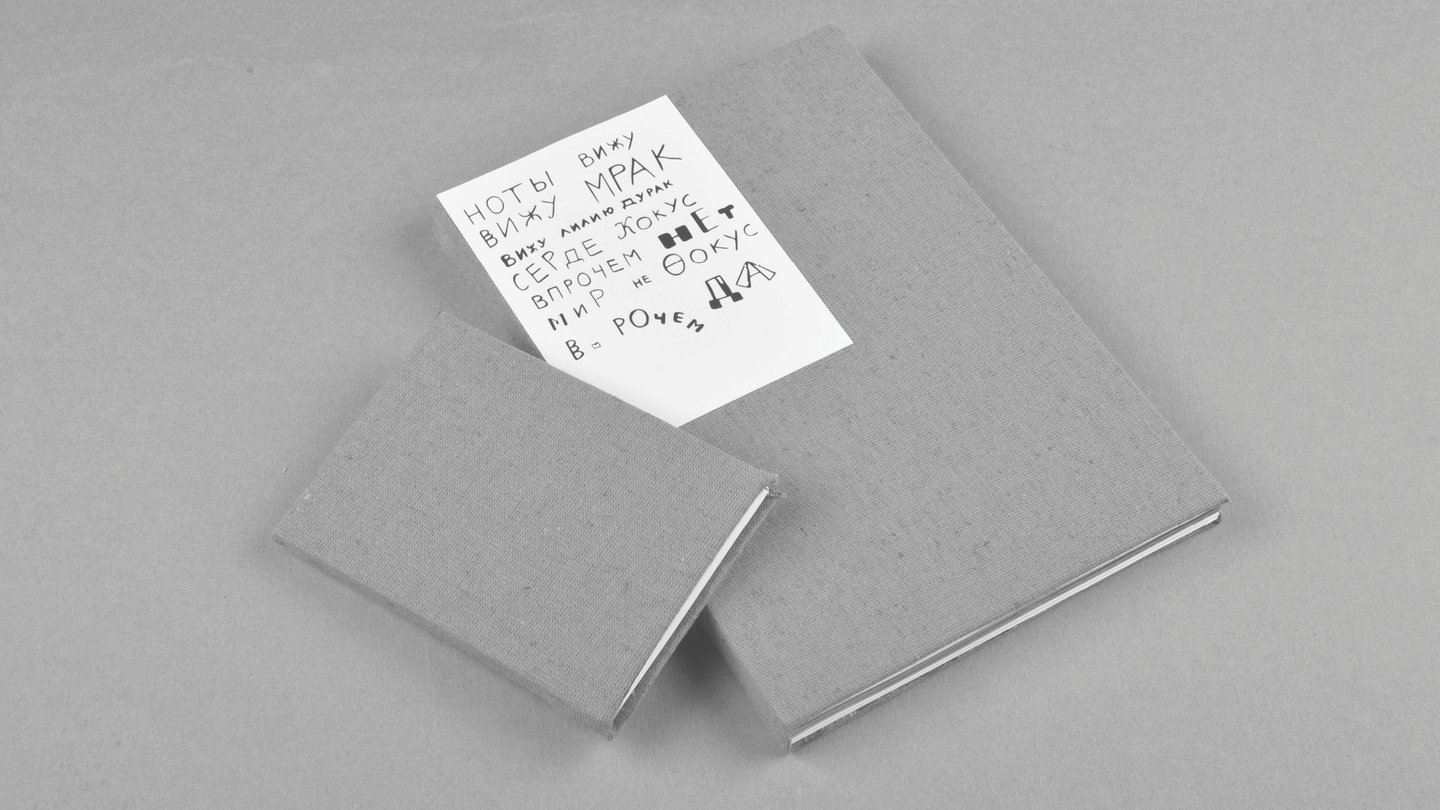 НОТЫ ВИЖУ
ВИЖУ МРАК
ВИЖУ ЛИЛИЮ ДУРАК
СЕРДЕ КОКУС
ВПРОЧЕМ НЕТ
МИР НЕ ѲОКУС
В РОЧЕМ ДА